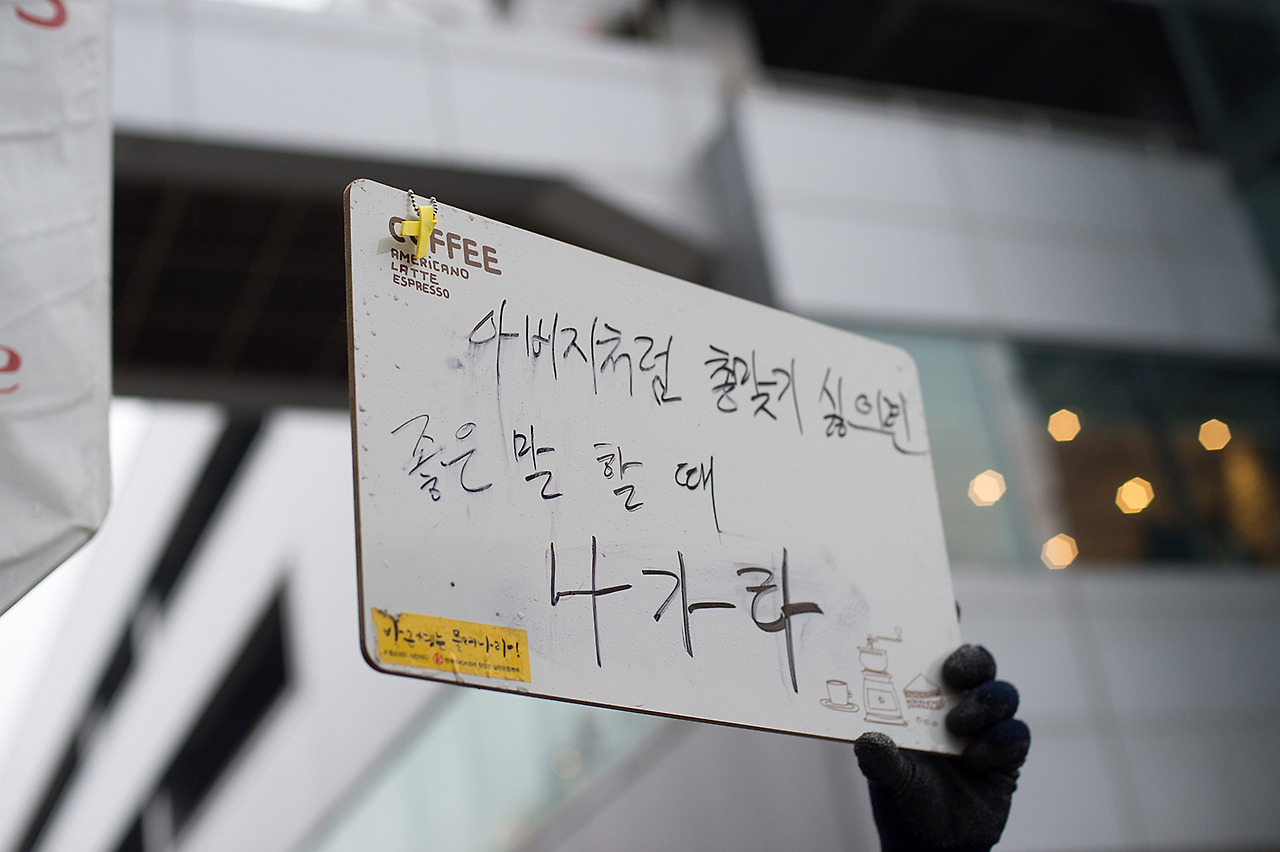 COFFEE
AMERICANO
LATTE
ESPRESSO
아버지처럼 총맞기 싫으면
좋은 말 할 때
나가라
박근혜는 물러나라!
S
e